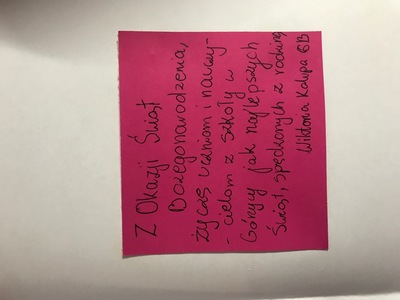 Z Okazji Świąt
Bożegonarodzenia,
życzę uczniom i nauczy-
- cielom z szkoły w
Górycy jak najlepszych
Świąt, spędzonych z rodziną
Wiktoria Kalupa 6B